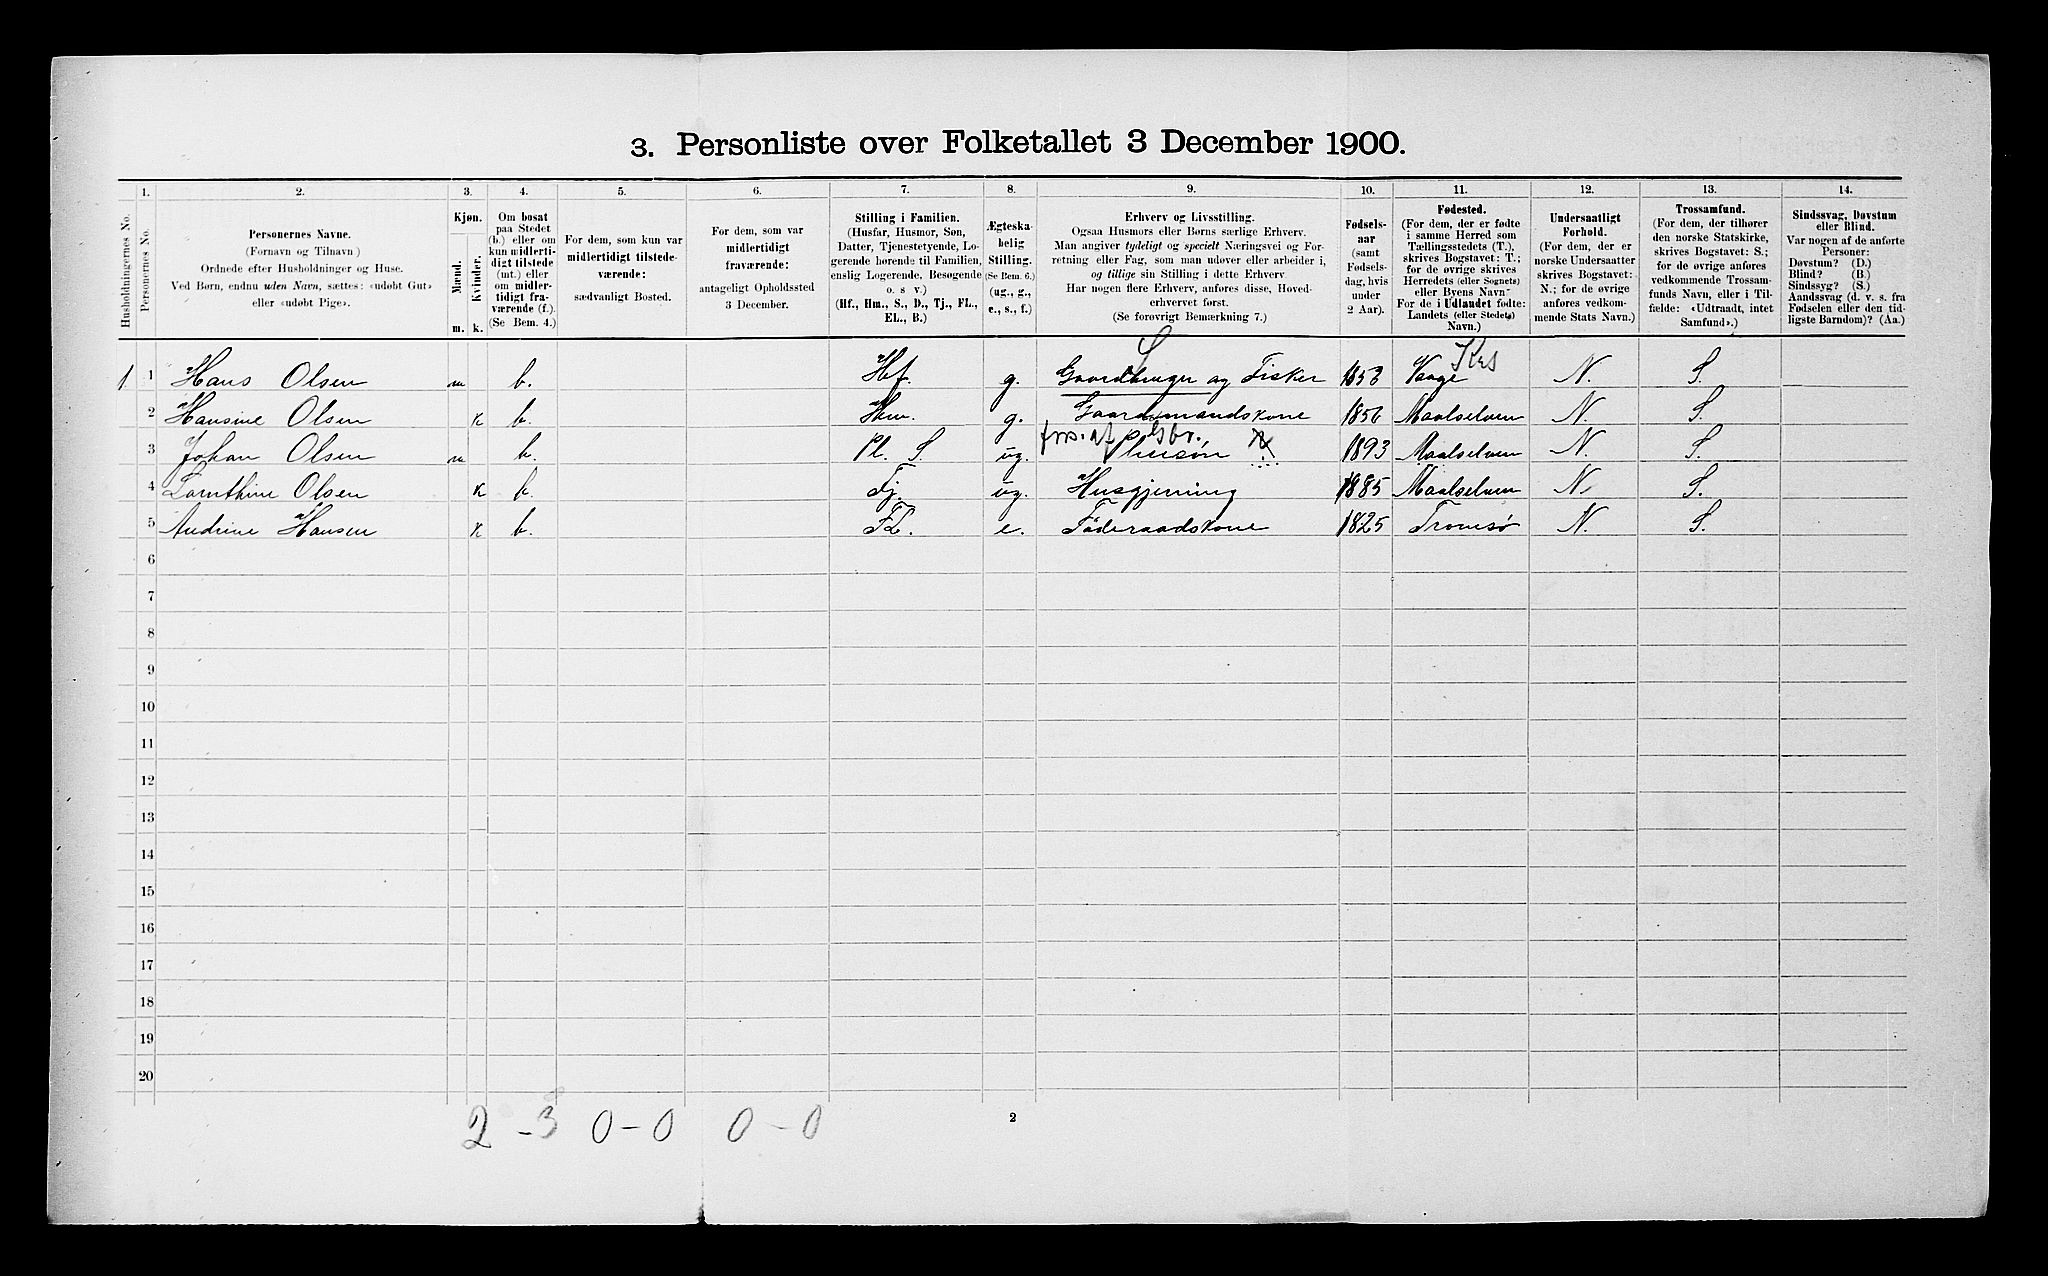 3. Personliste over Folketallet 3 December 1900.
1. 2. 3. 4. 5. 6. 7. 8. 9. 10. 11. 12. 13. 14.
Husholdningernes No.
Personernes No.
Personernes Navne.
(Fornavn og Tilnavn)
Ordnede efter Husholdninger og Huse.
Ved Børn, endnu uden Navn, sættes: «udøbt Gut»
eller «udøbt Pige».
Kjøn.
Mænd.
Kvinder.
m. k.
Om bosat
paa Stedet
(b.) eller om
kun midlerti-
digt tilstede
(mt.) eller
om midler-
tidigt fra-
værende (f.).
(Se Bem. 4.)
For dem, som kun var
midlertidigt tilstede-
værende:
sædvanligt Bosted.
For dem, som var
midlertidigt
fraværende:
antageligt Opholdssted
3 December.
Stilling i Familien.
(Husfar, Husmor, Søn,
Datter, Tjenestetyende, Lo-
gerende hørende til Familien,
enslig Logerende, Besøgende
o. s v.)
(Hf., Hm., S., D., Tj., FL.,
EL., B.)
Ægteska-
belig
Stilling.
(Se Bem. 6.)
(ug., g.,
e., s., f.)
Erhverv og Livsstilling.
Ogsaa Husmors eller Børns særlige Erhverv.
Man angiver tydeligt og specielt Næringsvei og For-
retning eller Fag, som man udøver eller arbeider i,
og tillige sin Stilling i dette Erhverv.
Har nogen flere Erhverv, anføres disse, Hoved-
erhvervet først.
(Se forøvrigt Bemærkning 7.)
Fødsels-
aar
(samt
Fødsels-
dag, hvis
under
2 Aar).
Fødested.
(For dem, der er fødte
i samme Herred som
Tællingsstedets (T.),
skrives Bogstavet: T.;
for de øvrige skrives
Herredets (eller Sognets)
eller Byens Navn
For de i Udlandet fødte:
Landets (eller Stedets)
Navn.)
Undersaatligt
Forhold.
(For dem, der er
norske Undersaatter
skrives Bogstavet:
N.; for de øvrige
anføres vedkom-
mende Stats Navn.)
Trossamfund.
(For dem, der tilhører
den norske Statskirke,
skrives Bogstavet: S.;
for de øvrige anføres
vedkommende Trossam-
funds Navn, eller i Til-
fælde: «Udtraadt, intet
Samfund».)
Sindssvag, Døvstum
eller Blind.
Var nogen af de anførte
Personer:
Døvstum? (D.)
Blind? (B.)
Sindssyg? (S.)
Aandssvag (d. v. s. fra
Fødselen eller den tid-
ligste Barndom)? (Aa.)
S Krs
1 1 Hans Olsen m b. Hf. g. Gaardbruger og Fisker 1853 Vaage N. S.
2 Hansine Olsen k b. Hm. g. Gaardmandskone 1856 Maalselven N. S.
fors. af Gbr.
3 Johan Olsen m b. Pl. S. ug. Pleiesøn 1893 Maalselven N. S.
4 Olsen k b. Tj. ug. Husgjerning 1885 Maalselven N. S.
5 Andrine Hansen k b. FL. e. Føderaadskone 1825 Tromsø N. S.
6
7
8
9
10
11
12
13
14
15
16
17
18
19
20
2 - 3 0 - 0 0 - 0
2